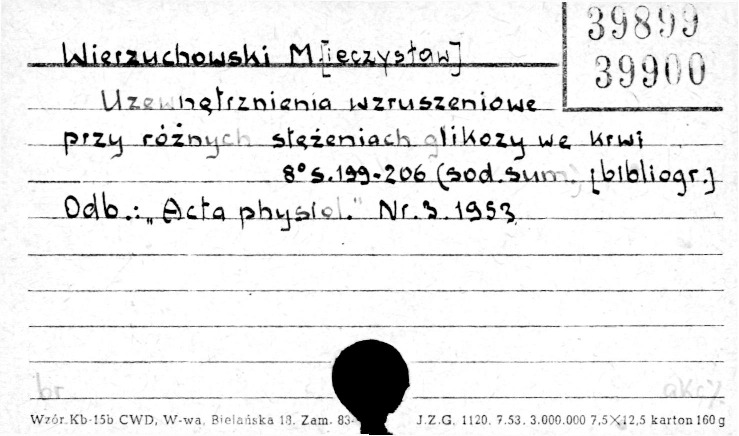 39899
39900
Wierzuchowski M[ieczysław]
Uzewnętrznienia wzruszeniowe
przy różnych stężeniach glikozy we krwi
8° s.199-206 (sod.sum. [bibliogr.]
Odb.: „Acta physiol." Nr.3.1953
br
akc/
Wzór Kb-15b CWD, W-wa, Bielańska 18. Zam. 83- J.Z.G. 1120. 7.53. 3.000.000 7,5×12,5 karton 160 g